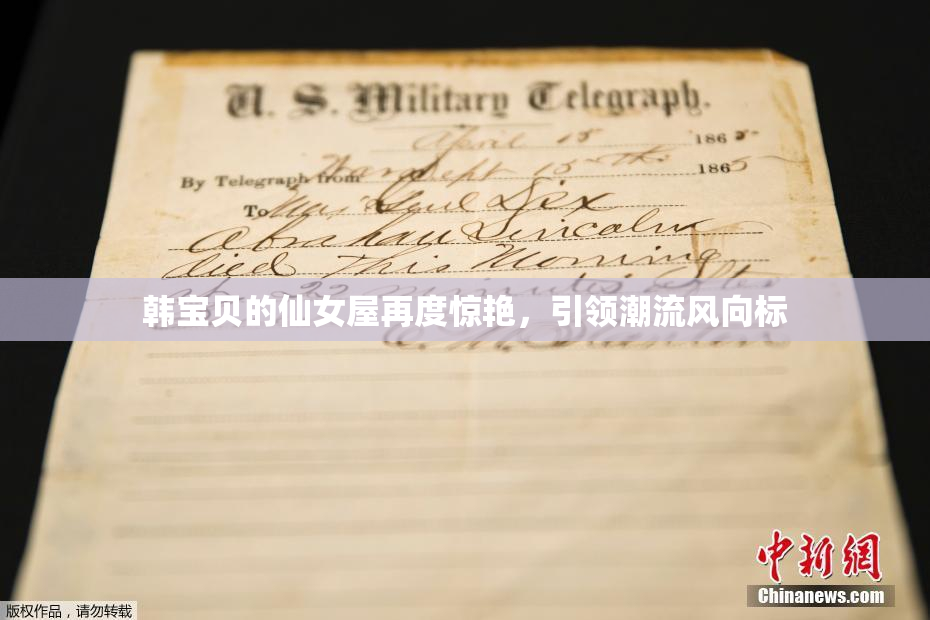 U. S. Military Telegraph.
April 15 1865
By Telegraph from War Dept 15th 1865
To Maj Genl Dix
Abraham Lincoln
died This Morning
22 minutes after
韩宝贝的仙女屋再度惊艳，引领潮流风向标
E. M. Stanton
中新网
Chinanews.com
版权作品，请勿转载